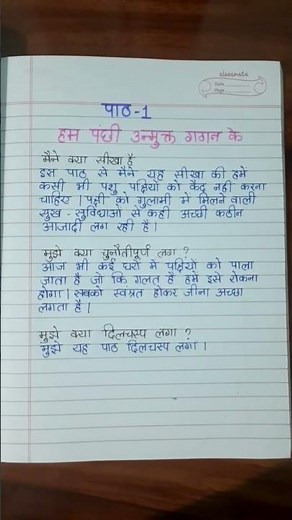 classmate
Date
Page
पाठ-1
हम पंछी उन्मुक्त गगन के
मैने क्या सीखा है
इस पाठ से मैने यह सीखा की हमें
कसी भी पशु-पक्षियो को कैद नही करना
चाहिए । पक्षी को गुलामी में मिलने वाली
सुख-सुविधाओ से कही अच्छी कठीन
आजादी लग रही है ।
मुझे क्या चुनौतीपूर्ण लगा ?
आज भी कई घरो में पक्षियों को पाला
जाता है जो कि गलत है हमे इसे रोकना
होगा । सबको स्वंत्रत होकर जीना अच्छा
लगता है ।
मुझे क्या दिलचस्प लगा ?
मुझे यह पाठ दिलचस्प लगा ।